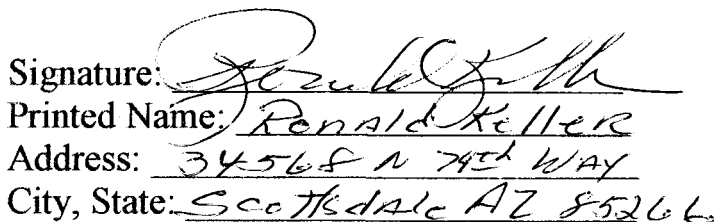 Signature: Ronald Keller
Printed Name: Ronald Keller
Address: 34568 N 74th WAY
City, State: Scottsdale AZ 85266